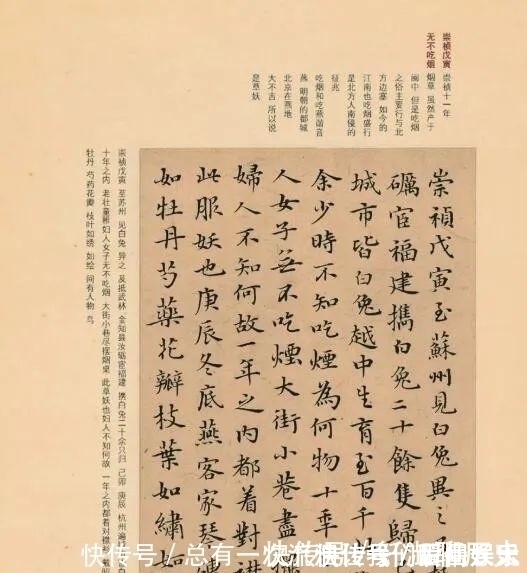 崇祯戊寅 崇祯十一年
无不吃烟 烟草 虽然产于
闽中 但是吃烟
之俗主要行与北
方边塞 如今的
江南也吃烟盛行
是北方人南侵的
征兆
吃烟和吃燕谐音
燕 明朝的都城
北京在燕地
大不吉 所以说
是草妖
崇禎戊寅至蘇州見白兔異之
礪宦福建攜白兔二十餘隻歸
城市皆白兔越中生育至百千
余少時不知吃煙為何物十年
人女子無不吃煙大街小巷盡
婦人不知何故一年之內都着對襟
此服妖也庚辰冬底燕客家琴
如牡丹芍藥花瓣枝葉如繡如
崇祯戊寅 至苏州 见白兔 异之 及抵武林 金知县汝砺宦福建 携白兔二十余只归 己卯 庚辰 杭州遍
十年之内 老壮童稚妇人女子无不吃烟 大街小巷尽摆烟桌 此草妖也妇人不知何故 一年之内都着对襟
牡丹 芍药花瓣 枝叶如绣 如绘 间有人物 鸟
快传号 / 总有一